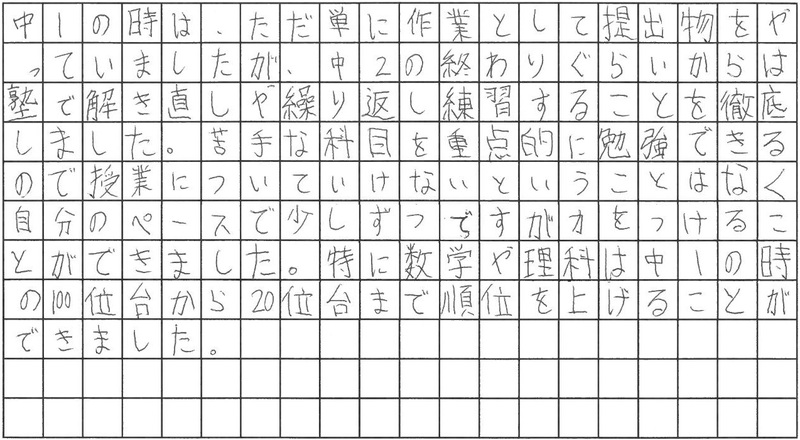 中1の時は、ただ単に作業として提出物をや
っていましたが、中2の終わりぐらいからは
塾で解き直しや繰り返し練習することを徹底
しました。苦手な科目を重点的に勉強できる
ので授業についていけないということはなく
自分のペースで少しずつですが力をつけるこ
とができました。特に数学や理科は中1の時
の100位台から20位台まで順位を上げることが
できました。